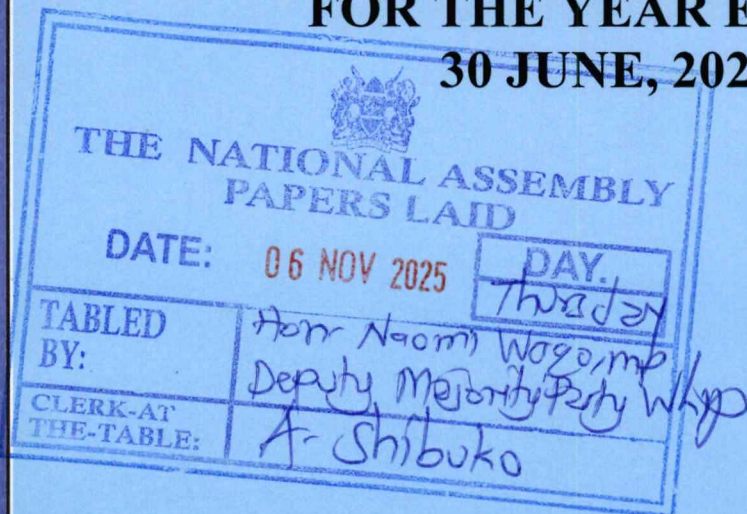 FOR THE YEAR E
30 JUNE, 202
THE NATIONAL ASSEMBLY
PAPERS LAID
DATE: 06 NOV 2025
DAY.
Thursday
TABLED
BY:
Hon Naomi Waqo, mp
Deputy Majority Party Whip
CLERK-AT
THE-TABLE:
A- Shibuko